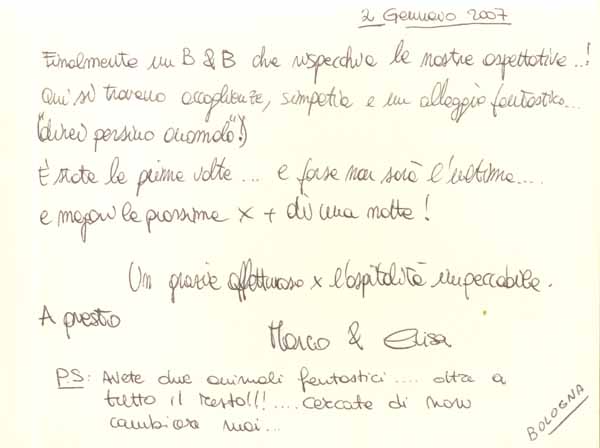 2 Gennaio 2007
Finalmente un B & B che rispecchia le nostre aspettative..!
Qui si trovano accoglienza, simpatia e un alloggio fantastico...
("direi persino anomalo"!)
È stata la prima volta.... e forse non sarà l'ultima....
e magari la prossima x + di una notte!
Un grazie affettuoso x l'ospitalità impeccabile.
A presto
Marco & Elisa
P.S: Avete due animali fantastici.... oltre a
tutto il resto!!!....cercate di non
cambiare mai...
BOLOGNA